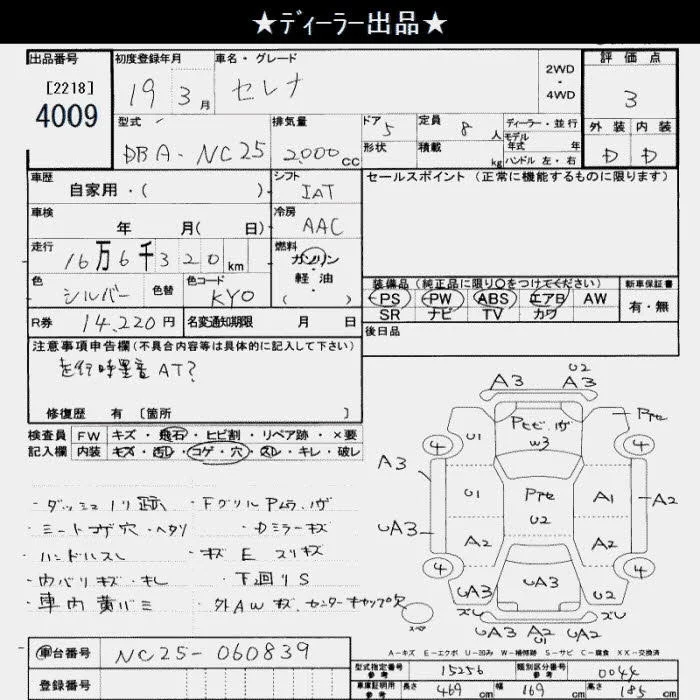 ★ディーラー出品★
出品番号 初度登録年月 車名・グレード 2WD・4WD 評価点
[2218] 4009 19 3月 セレナ 3
型式 排気量 ドア 5 定員 8人 ディーラー・並行 外装 内装
DBA-NC25 2000cc 形状 積載 kg モデル年式 年 D D
ハンドル 左・右
車歴 自家用・( ) シフト IAT セールスポイント(正常に機能するものに限ります)
車検 年 月( 日) 冷房 AAC
走行 16万6千320km 燃料 ガソリン 軽油 ( )
色 シルバー 色替 色コード KY0 装備品(純正品に限り○をつけてください) 新車保証書
PS PW ABS エアB AW 有・無
SR ナビ TV カワ
R券 14,220円 名変通知期限 月 日 後日品
注意事項申告欄(不具合内容等は具体的に記入して下さい)
走行時異音AT?
修復歴 有 [箇所 ]
検査員 FW キズ・飛石・ヒビ割・リペア跡・×要
記入欄 内装 キズ・汚レ・コゲ・穴・スレ・キレ・破レ
・ダッシュノリ跡 ・Fグリル
・シートコゲ穴・ヘタリ ・Dミラーキズ
・ハンドルスレ ・キズE スリキズ
・内バリキズ・キレ ・下回りS
・車内黄バミ ・外AWキズ、センターキャップ欠
U2
A3 A3
U1 W3 Pケ
4 4
A3 U1 Pケ A1 A2
U2
UA3 A2 A2
4 4
UA3 UA3 U2
スペア ズレ ズレ
UA3 A2 UA3
U1
A-キズ E-エクボ U-凹み W-補修跡 S-サビ C-腐食 XX-交換済
車台番号 NC25-060839
型式指定番号 参考 15256 類別区分番号 参考 0044
登録番号 車庫証明用 参考 長さ 469cm 幅 169cm 高さ 185cm